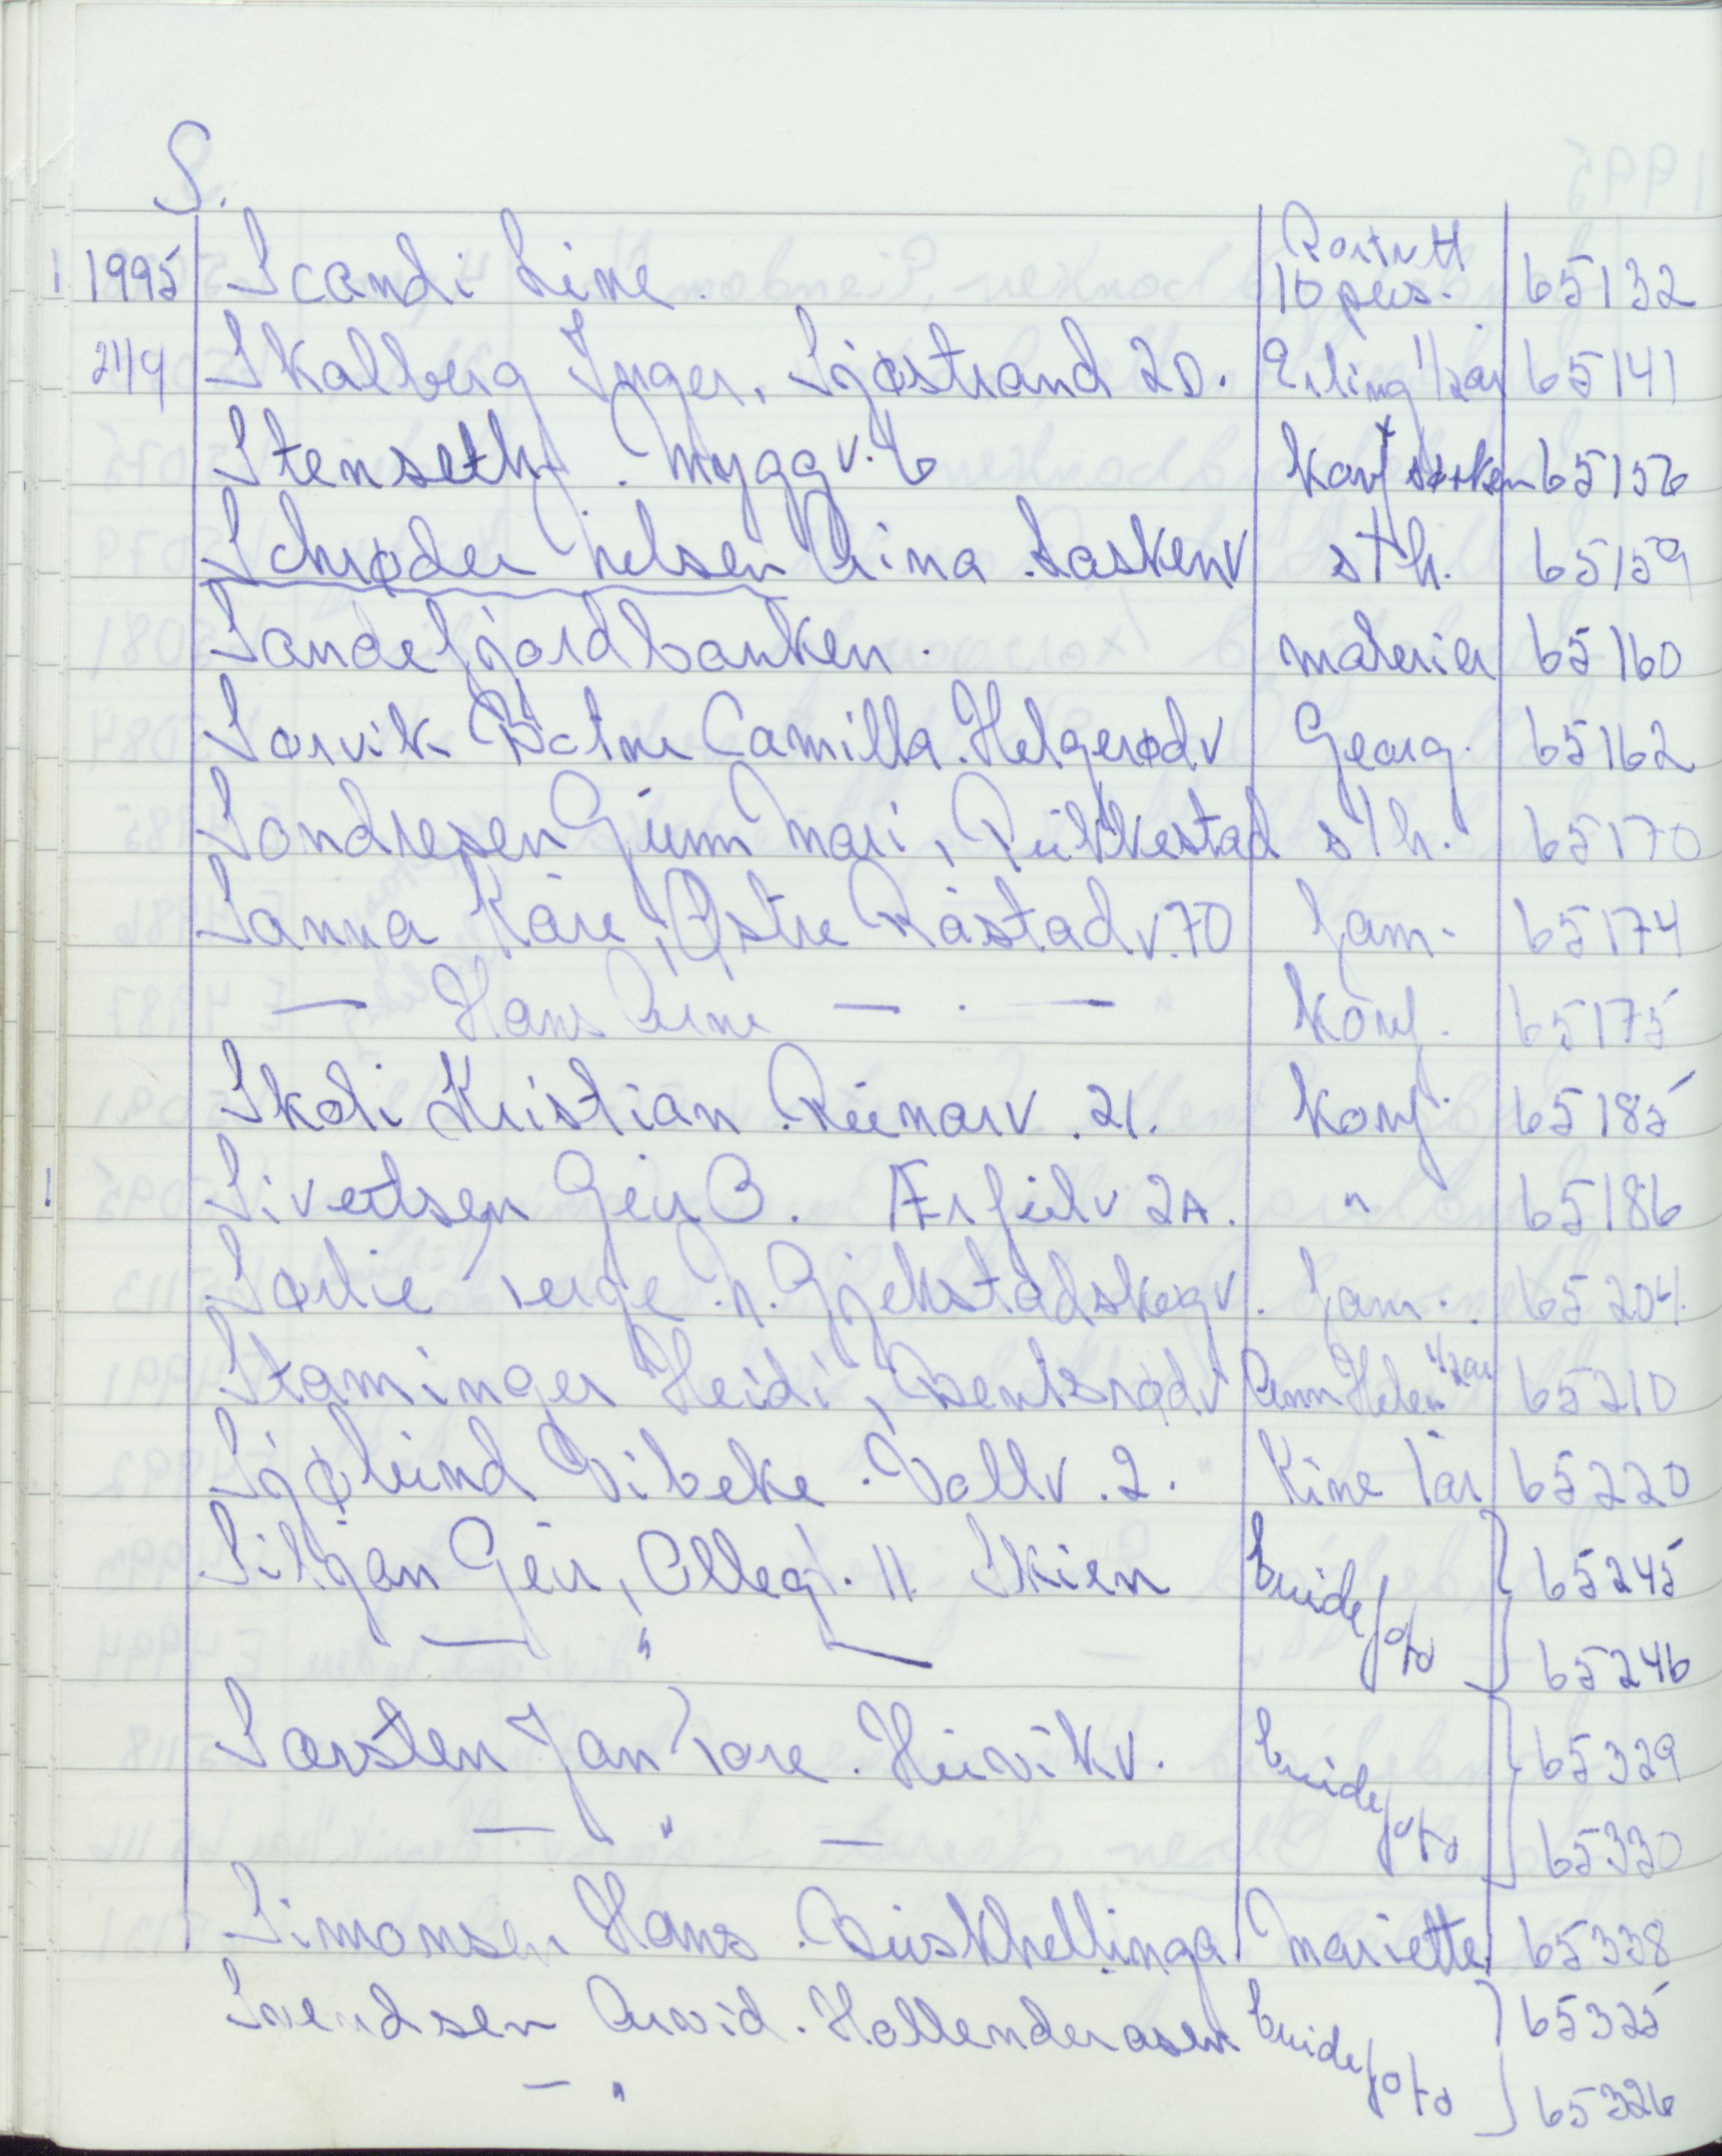 S.
1995 Scandi Line. Portrett 10 pers. 65132
24/9 Skalberg Inger, Sjøstrand 20. Erling 1/2 år 65141
Stenseth. Myggv. 6 Konf søsken 65156
Schrøder Nelsen Anina. Laskenv sth. 65159
Sandefjordbanken. malerier 65160
Sørvik Camilla. Helgerødv Georg. 65162
Sondresen Gunn Mari, sth. 65170
Sanna Kåre, Østre Råstadv. 70 fam. 65174
— Hans Arne — . — Konf. 65175
Skoli Kristian. Runarv. 21. Konf. 65185
Sivertsen Geir B. Ærfuglv 2A. " 65186
Sørlie. Gjekstadskogv. fam. 65204
Staminger Heidi, Bentsrødv Ann Helen 1/2 år 65210
Sjølund Vibeke. Vollv. 2. Kine 1 år 65220
Siljan Geir, Olleg. 11 Skien brudefoto 65245
— " — 65246
Sørsten Jan Tore. Huvikv. brudefoto 65329
— " — 65330
Simonsen Hans. Buskhellinga Mariette 65338
Svendsen Arvid. Hollenderåsen brudefoto 65325
— " 65326